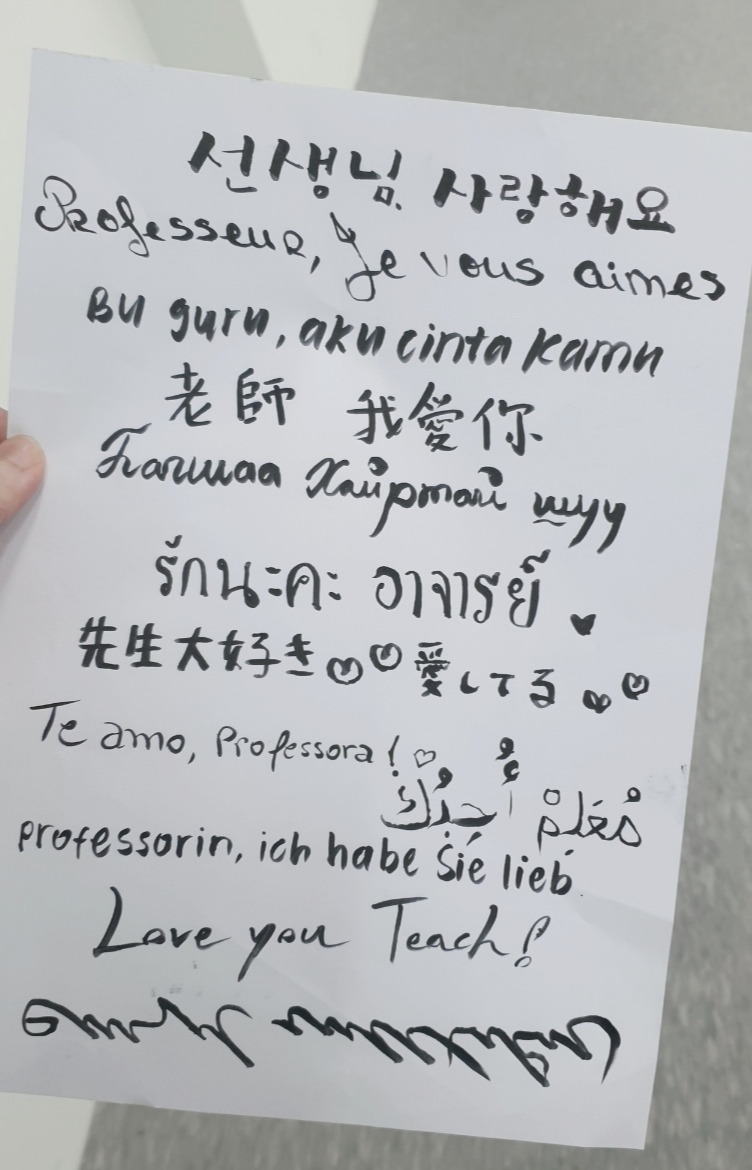 선생님 사랑해요
Professeur, Je vous aimes
Bu guru, aku cinta kamu
老師 我愛你
Багшаа Хайртай шүү
รักนะคะ อาจารย์
先生大好き 愛してる
Te amo, Professora!
مُعَلِمْ أُحِبُّكَ
professorin, ich habe Sie lieb.
Love you Teach!